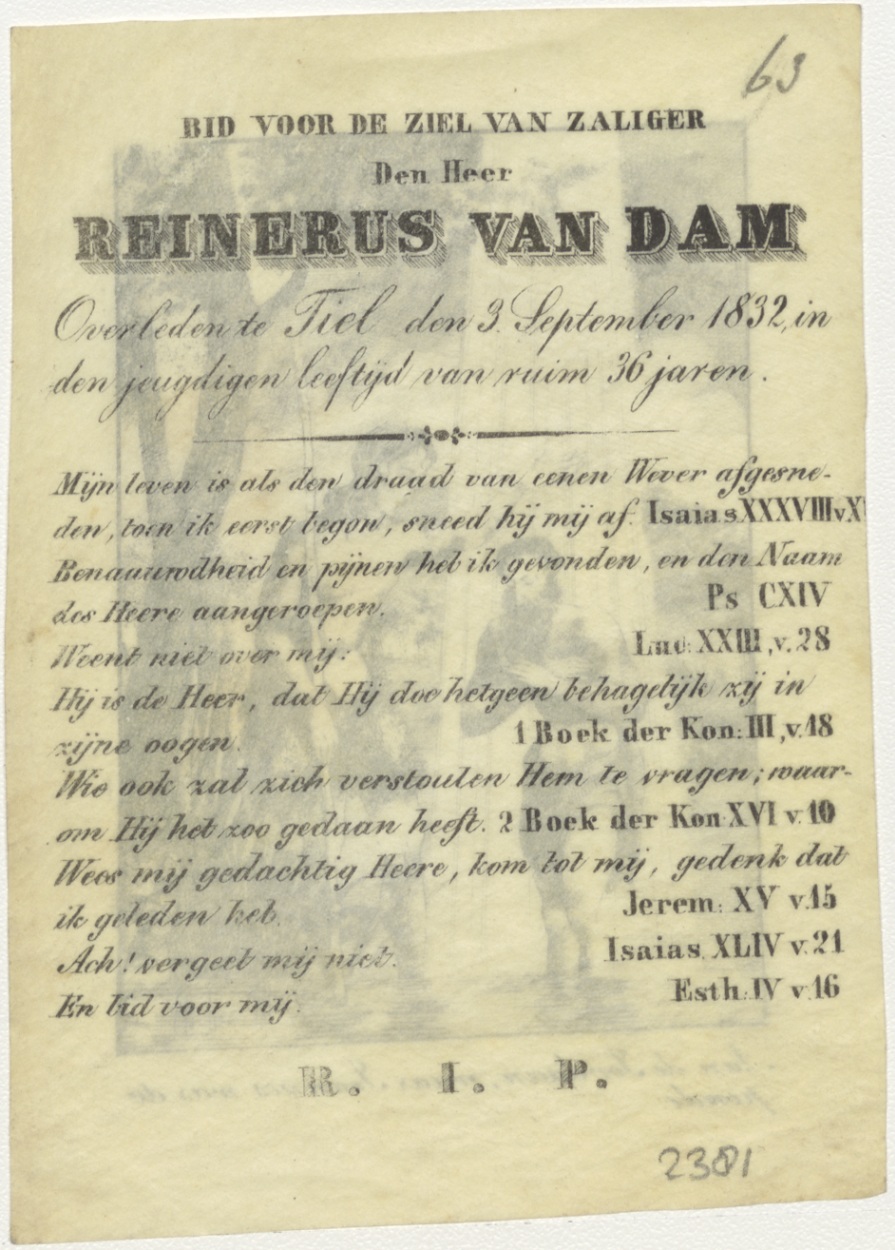 63
BID VOOR DE ZIEL VAN ZALIGER
Den Heer
REINERUS VAN DAM
Overleden te Tiel den 3. September 1832, in
den jeugdigen leeftijd van ruim 36 jaren.
Mijn leven is als den draad van eenen Wever afgesne-
den, toen ik eerst begon, sneed hij mij af. Isaias XXXVIII v
Benaauwdheid en pijnen heb ik gevonden, en den Naam
des Heere aangeroepen. Ps CXIV
Weent niet over mij: Luc: XXIII, v. 28
Hij is de Heer, dat Hij doe hetgeen behagelijk zij in
zijne oogen. 1 Boek der Kon: III, v. 18
Wie ook zal zich verstouten Hem te vragen; waar-
om Hij het zoo gedaan heeft. 2 Boek der Kon XVI v. 10
Wees mij gedachtig Heere, kom tot mij, gedenk dat
ik geleden heb. Jerem: XV v. 15
Ach! vergeet mij niet. Isaias. XLIV v. 21
En bid voor mij. Esth: IV v. 16
R. I. P.
2381